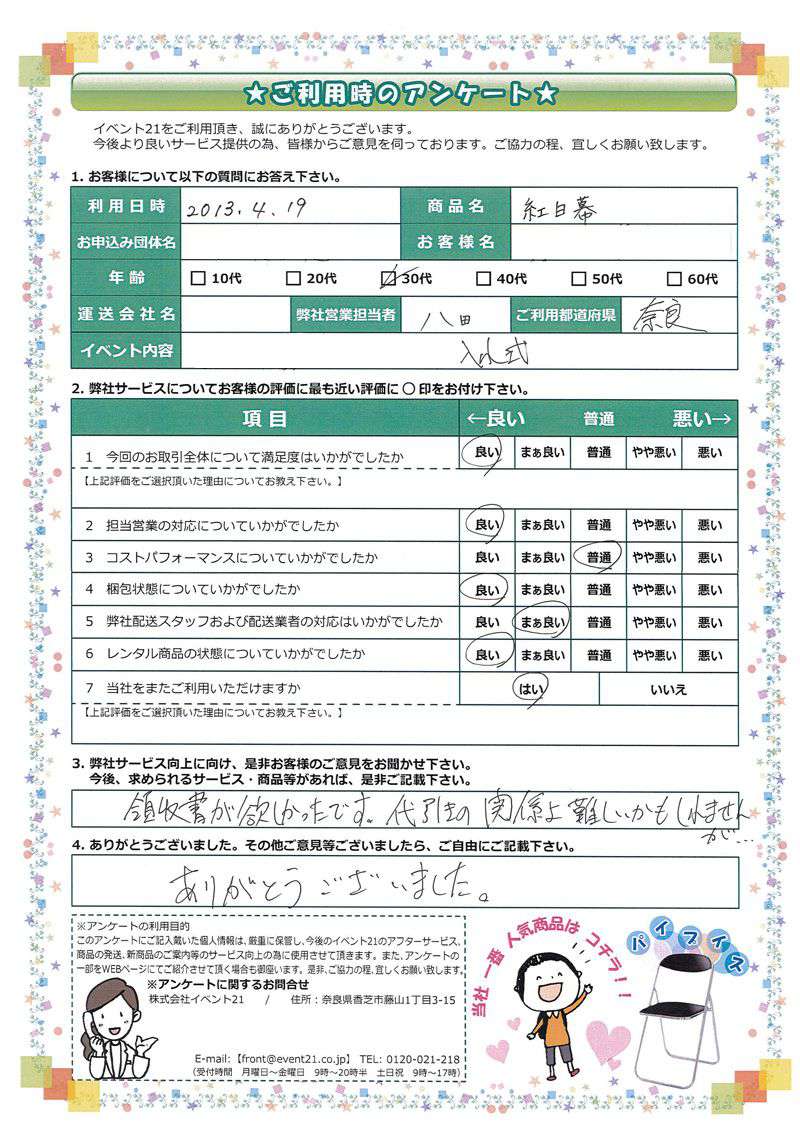 ★ご利用時のアンケート★
イベント21をご利用頂き、誠にありがとうございます。
今後より良いサービス提供の為、皆様からご意見を伺っております。ご協力の程、宜しくお願い致します。
1. お客様について以下の質問にお答え下さい。
利用日時 2013.4.19 商品名 紅白幕
お申込み団体名 お客様名
年齢 □ 10代 □ 20代 ☑ 30代 □ 40代 □ 50代 □ 60代
運送会社名 弊社営業担当者 八田 ご利用都道府県 奈良
イベント内容 入水式
2. 弊社サービスについてお客様の評価に最も近い評価に ○ 印をお付け下さい。
項目 ←良い 普通 悪い→
1 今回のお取引全体について満足度はいかがでしたか 良い まぁ良い 普通 やや悪い 悪い
【上記評価をご選択頂いた理由についてお教え下さい。】
2 担当営業の対応についていかがでしたか 良い まぁ良い 普通 やや悪い 悪い
3 コストパフォーマンスについていかがでしたか 良い まぁ良い 普通 やや悪い 悪い
4 梱包状態についていかがでしたか 良い まぁ良い 普通 やや悪い 悪い
5 弊社配送スタッフおよび配送業者の対応はいかがでしたか 良い まぁ良い 普通 やや悪い 悪い
6 レンタル商品の状態についていかがでしたか 良い まぁ良い 普通 やや悪い 悪い
7 当社をまたご利用いただけますか はい いいえ
【上記評価をご選択頂いた理由についてお教え下さい。】
3. 弊社サービス向上に向け、是非お客様のご意見をお聞かせ下さい。
今後、求められるサービス・商品等があれば、是非ご記載下さい。
領収書が欲しかったです。代引きの関係上難しいかもしれません
が…
4. ありがとうございました。その他ご意見等ございましたら、ご自由にご記載下さい。
ありがとうございました。
※アンケートの利用目的
このアンケートにご記入戴いた個人情報は、厳重に保管し、今後のイベント21のアフターサービス、
商品の発送、新商品のご案内等のサービス向上の為に使用させて頂きます。また、アンケートの
一部をWEBページにてご紹介させて頂く場合も御座います。是非、ご協力の程、宜しくお願い致します。
※アンケートに関するお問合せ
株式会社イベント21 / 住所：奈良県香芝市藤山1丁目3-15
E-mail:【front@event21.co.jp】 TEL: 0120-021-218
（受付時間 月曜日～金曜日 9時～20時半 土日祝 9時～17時）
当社一番人気商品はコチラ！！
パイプイス